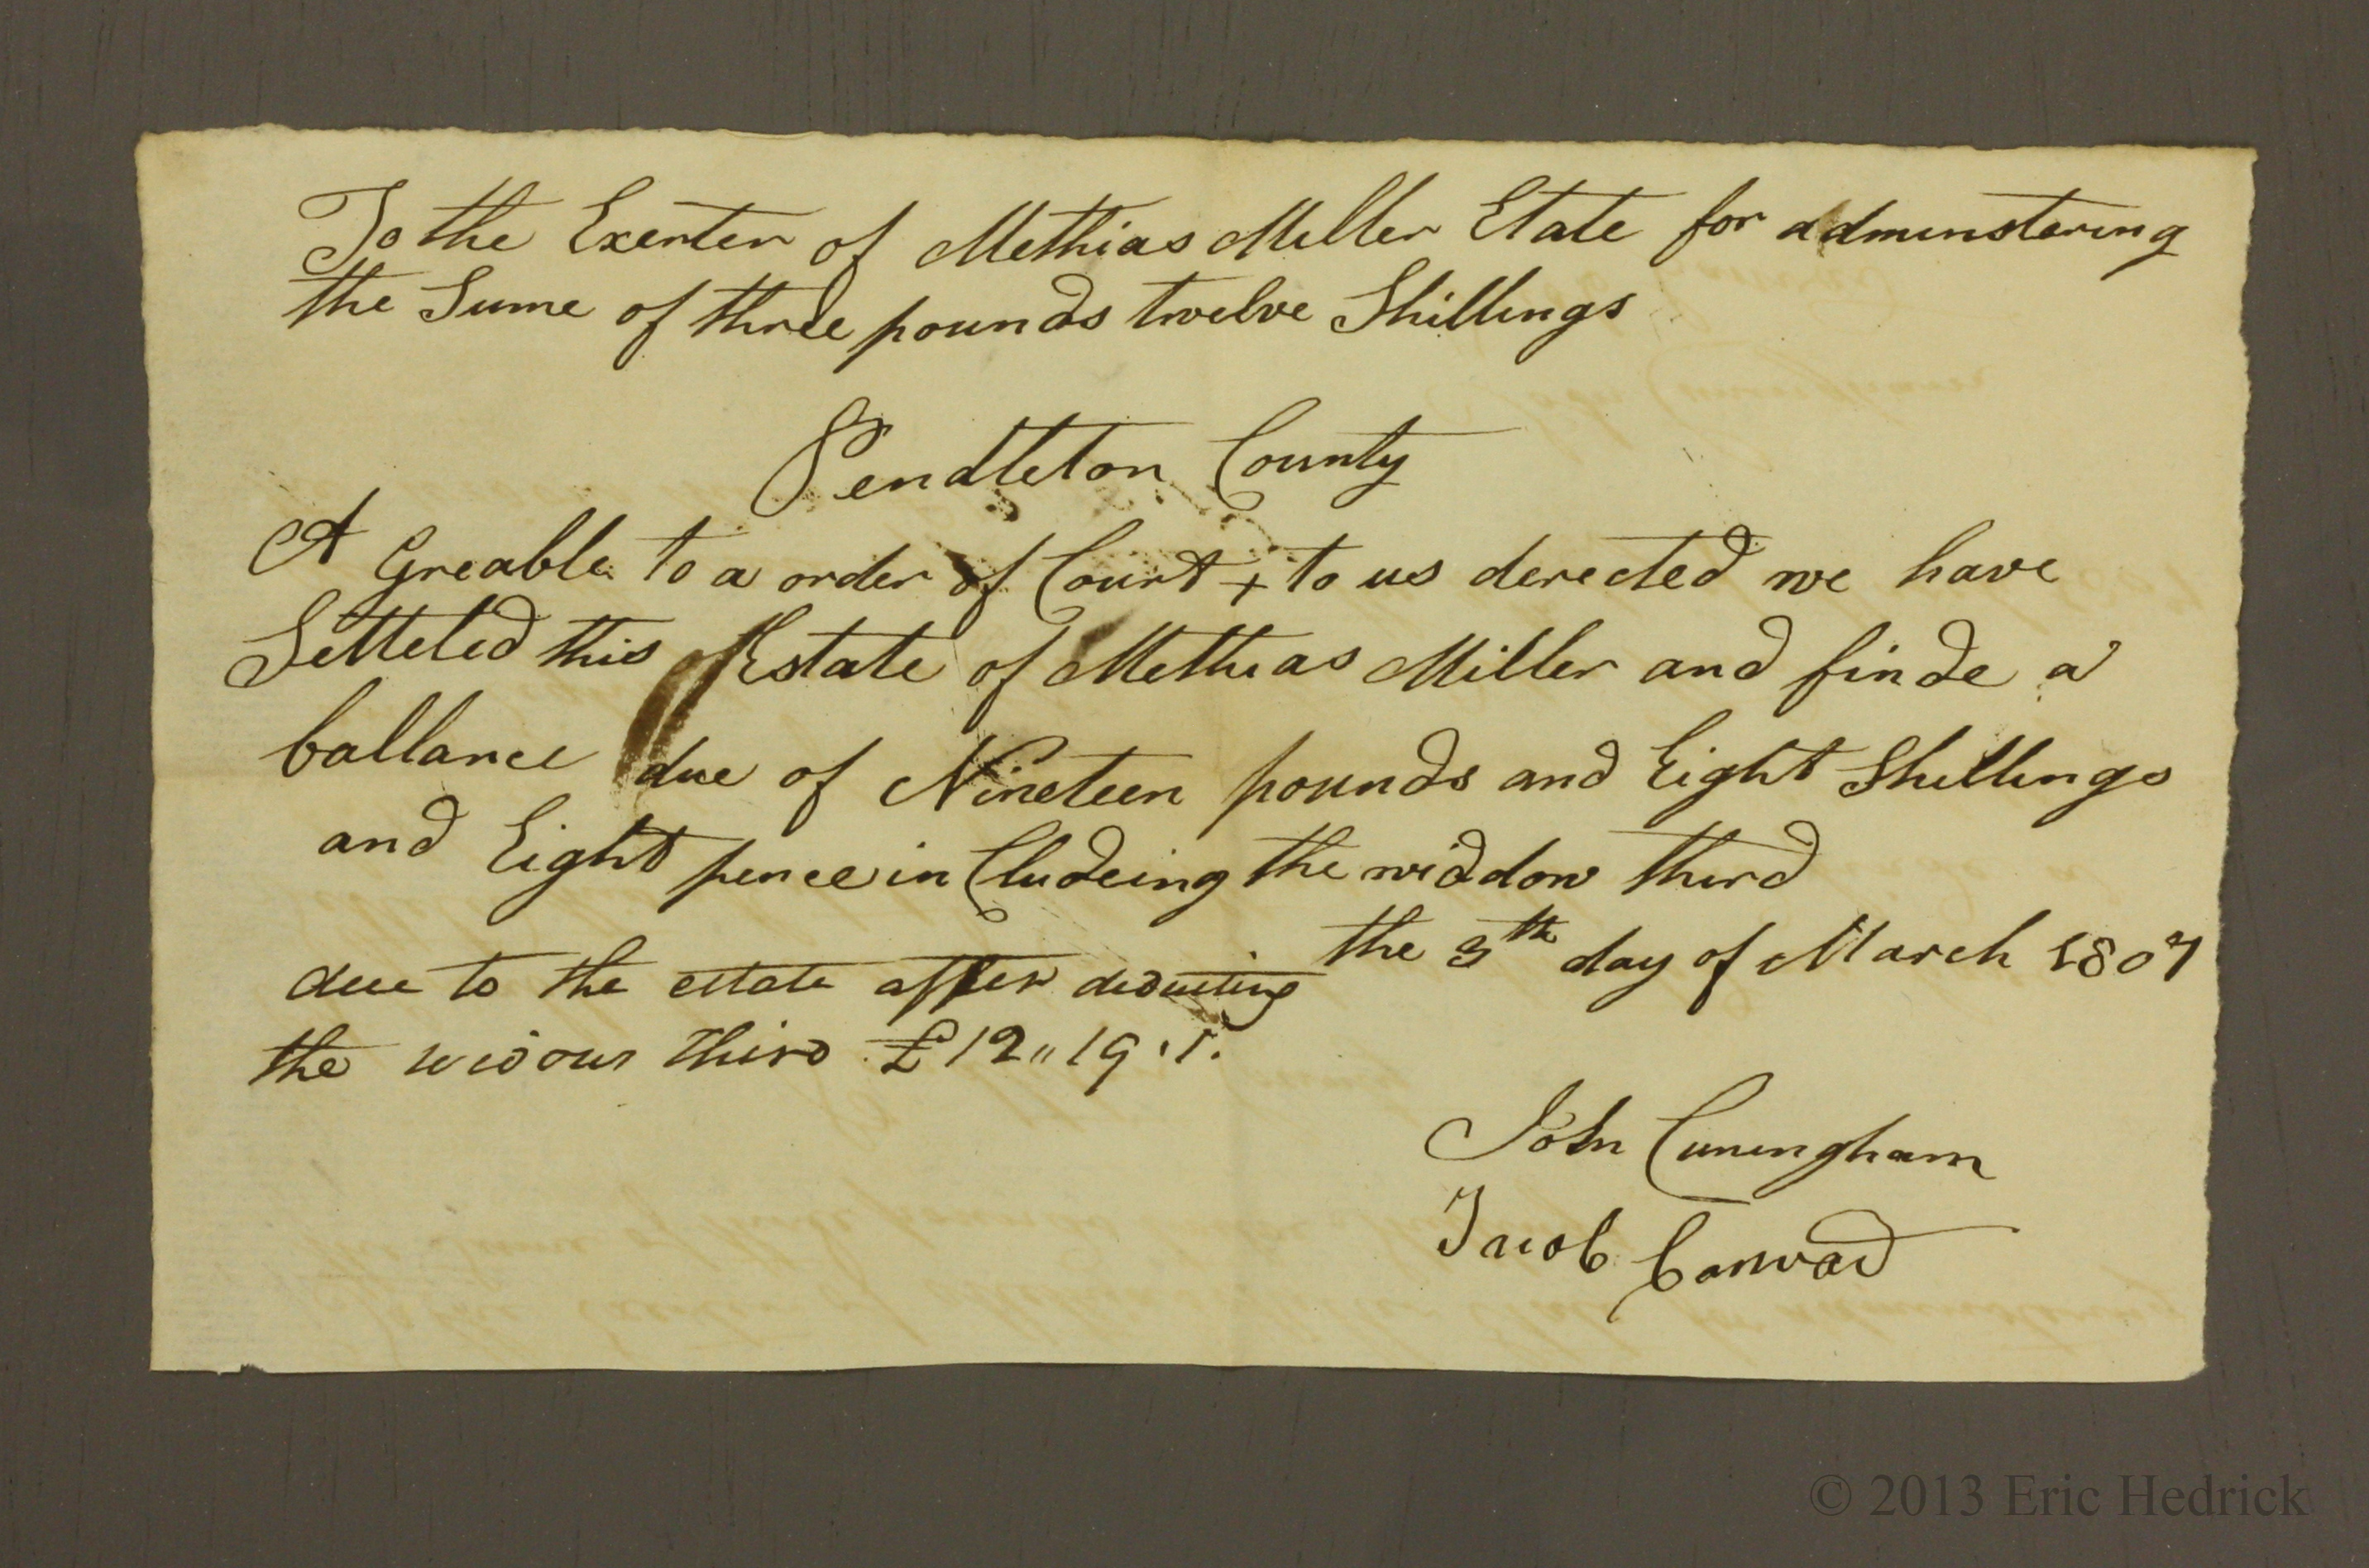 To the Exenter of Methias Miller Etate for adminstering
the Sume of three pounds twelve Shillings
Pendleton County
A Greable to a order of Court + to us derected we have
Setteled this Estate of Methias Miller and finde a
ballance due of Nineteen pounds and Eight Shillings
and Eight pence in Cludeing the widdow third
the 3th day of March 1807
due to the estate after deducting
the widows third £12,,19.1.
John Cuningham
Jacob Conwad
© 2013 Eric Hedrick